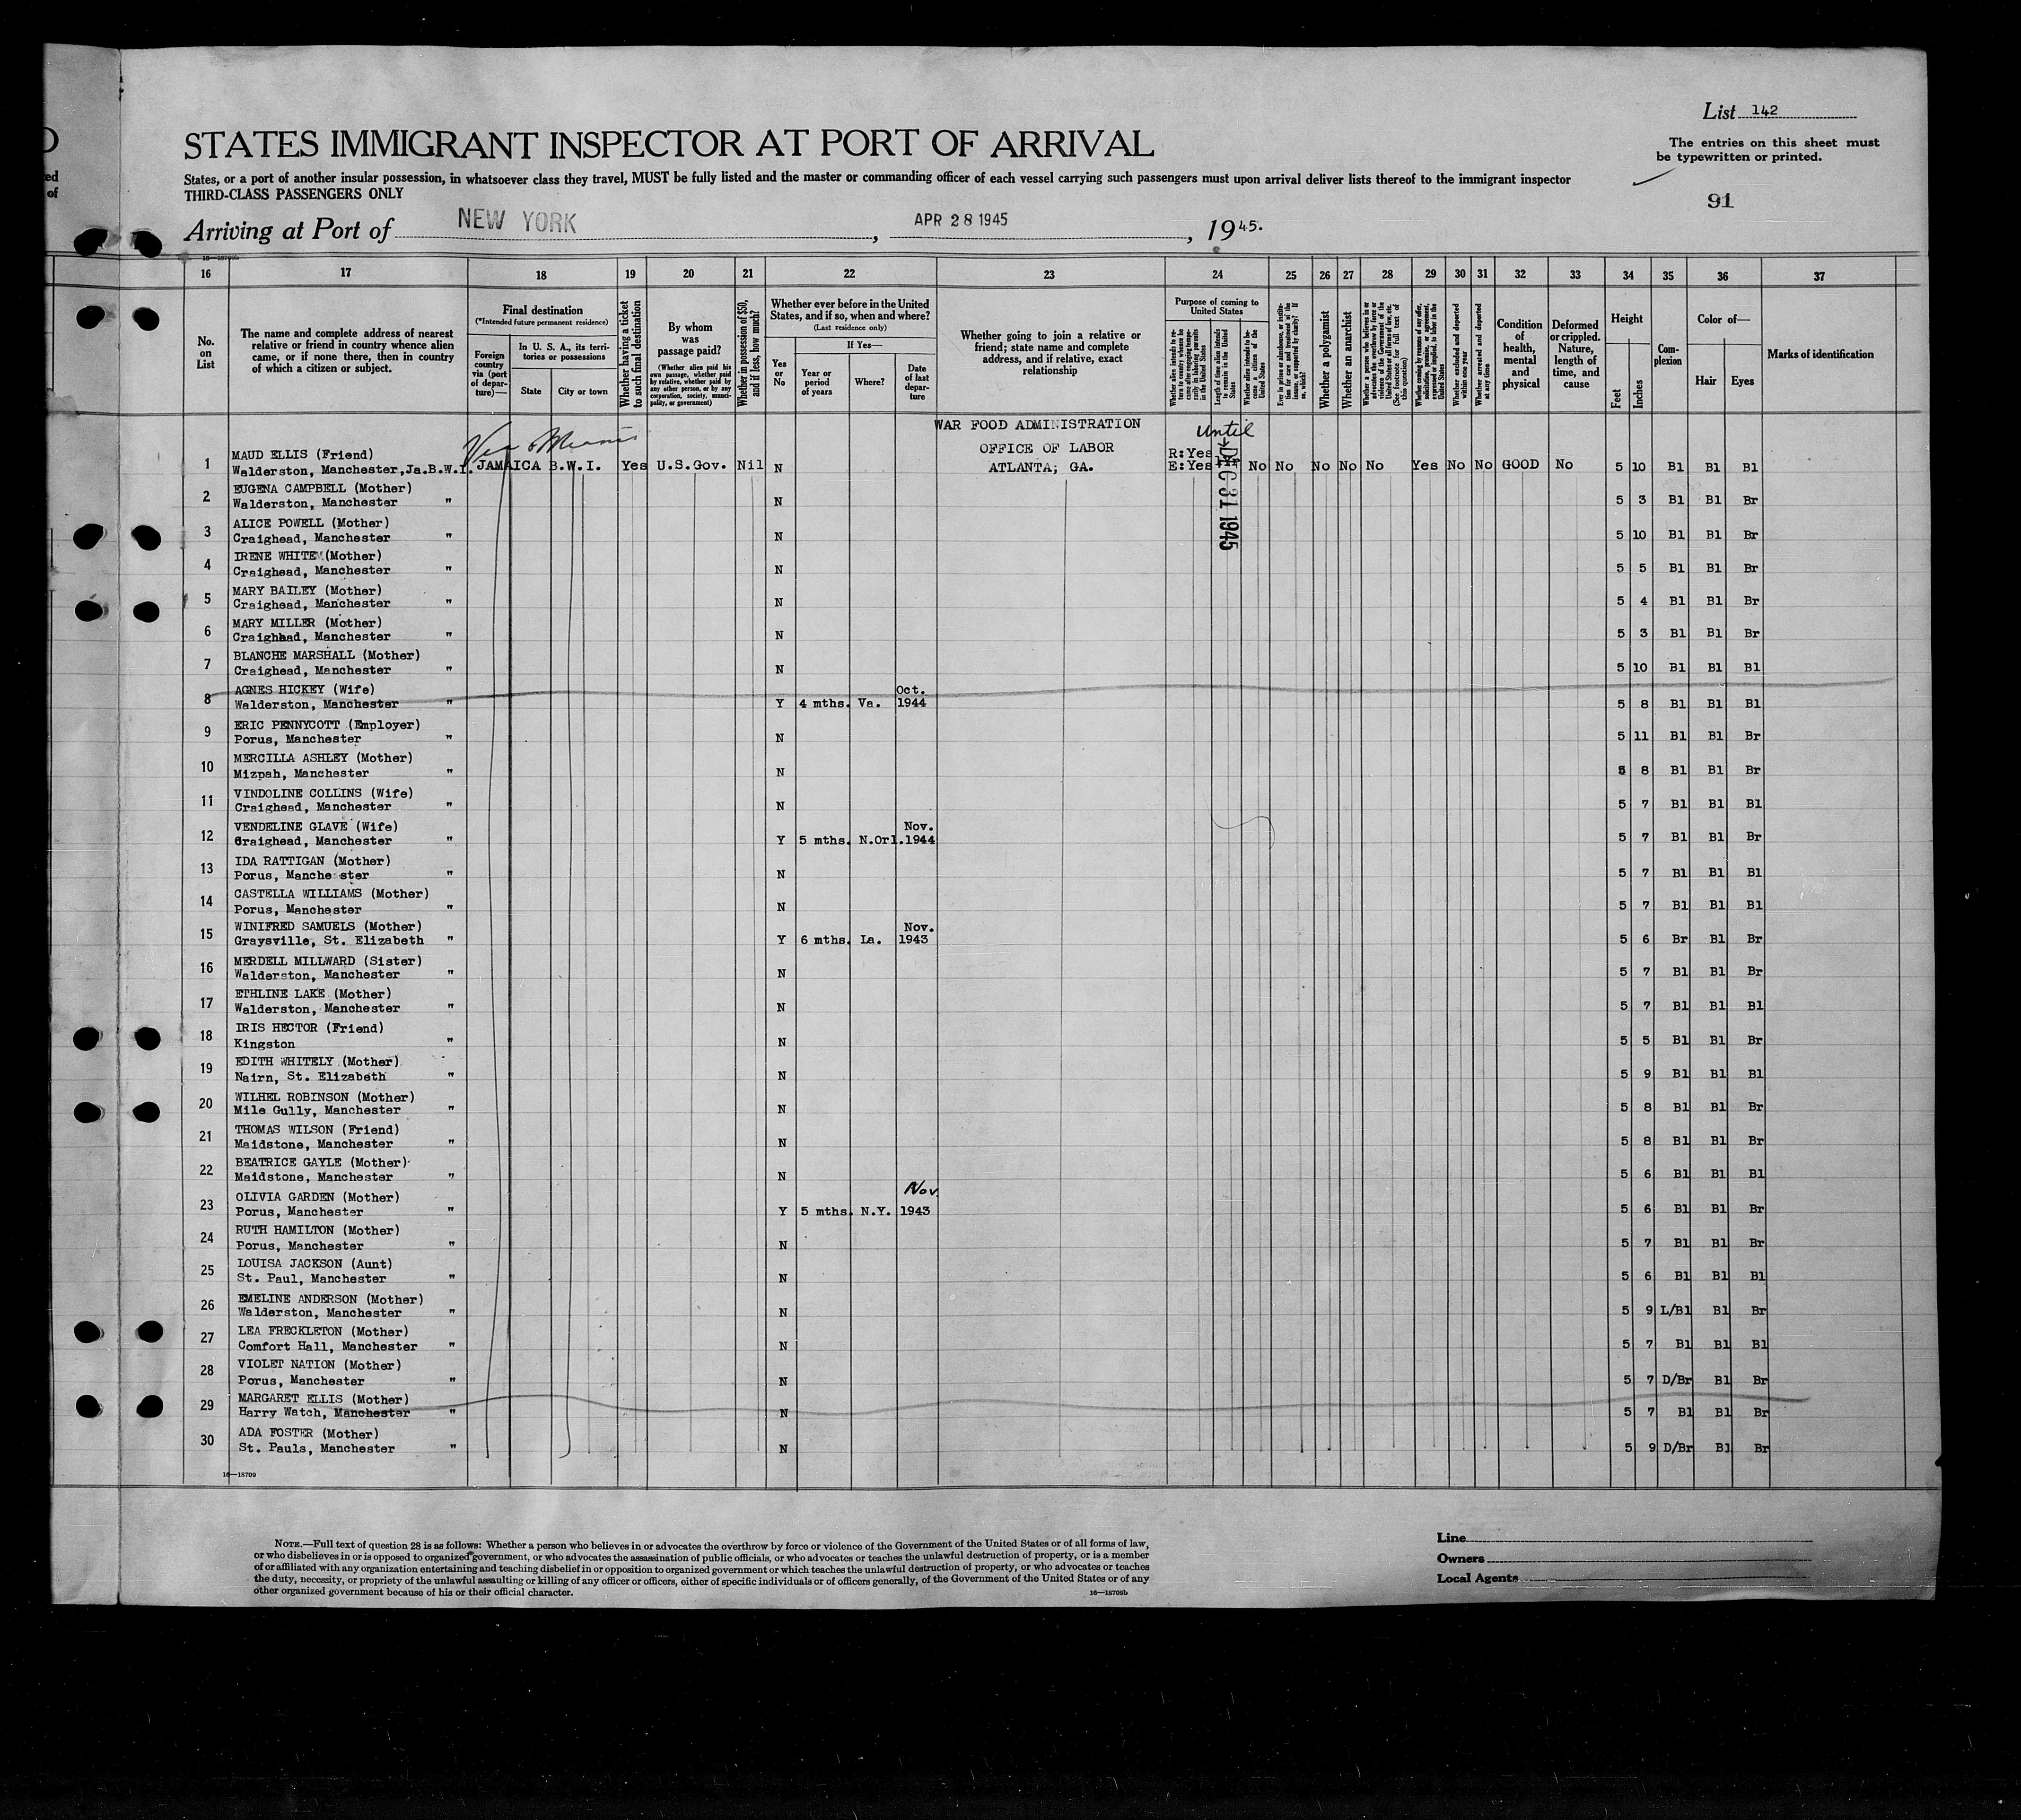 List 142
STATES IMMIGRANT INSPECTOR AT PORT OF ARRIVAL
The entries on this sheet must
be typewritten or printed.
ed
of
States, or a port of another insular possession, in whatsoever class they travel, MUST be fully listed and the master or commanding officer of each vessel carrying such passengers must upon arrival deliver lists thereof to the immigrant inspector
THIRD-CLASS PASSENGERS ONLY
91
Arriving at Port of NEW YORK, APR 28 1945, 1945.
16 17 18 19 20 21 22 23 24 25 26 27 28 29 30 31 32 33 34 35 36 37
No. on List
The name and complete address of nearest relative or friend in country whence alien came, or if none there, then in country of which a citizen or subject.
Final destination
(*Intended future permanent residence)
Foreign country via (port of departure)—
In U. S. A., its territories or possessions
State
City or town
Whether having a ticket to such final destination
By whom was passage paid?
(Whether alien paid his own passage, whether paid by relative, whether paid by any other person, or by any corporation, society, municipality, or government)
Whether in possession of $50, and if less, how much?
Whether ever before in the United States, and if so, when and where?
(Last residence only)
Yes or No
If Yes—
Year or period of years
Where?
Date of last departure
Whether going to join a relative or friend; state name and complete address, and if relative, exact relationship
Purpose of coming to United States
Whether alien intends to return to country whence he came after engaging temporarily in laboring pursuits in the United States
Length of time alien intends to remain in the United States
Whether alien intends to become a citizen of the United States
Ever in prison or almshouse, or institution for care and treatment of the insane, or supported by charity? If so, which?
Whether a polygamist
Whether an anarchist
Whether a person who believes in or advocates the overthrow by force or violence of the Government of the United States or all forms of law, etc. (See footnote for full text of this question)
Whether coming by reasons of any offer, solicitation, promise, or agreement, expressed or implied, to labor in the United States
Whether excluded and deported within one year
Whether arrested and deported at any time
Condition of health, mental and physical
Deformed or crippled. Nature, length of time, and cause
Height
Feet
Inches
Complexion
Color of—
Hair
Eyes
Marks of identification
WAR FOOD ADMINISTRATION
OFFICE OF LABOR
ATLANTA; GA.
Until
DEC 31 1945
1 MAUD ELLIS (Friend)
Walderston, Manchester, Ja.B.W.I. JAMAICA B.W.I. Yes U.S.Gov. Nil N R:Yes E:Yes No No No No No Yes No No GOOD No 5 10 Bl Bl Bl
2 EUGENA CAMPBELL (Mother)
Walderston, Manchester " N 5 3 Bl Bl Br
3 ALICE POWELL (Mother)
Craighead, Manchester " N 5 10 Bl Bl Br
4 IRENE WHITE (Mother)
Craighead, Manchester " N 5 5 Bl Bl Br
5 MARY BAILEY (Mother)
Craighead, Manchester " N 5 4 Bl Bl Br
6 MARY MILLER (Mother)
Craighead, Manchester " N 5 3 Bl Bl Br
7 BLANCHE MARSHALL (Mother)
Craighead, Manchester " N 5 10 Bl Bl Bl
8 AGNES HICKEY (Wife)
Walderston, Manchester " Y 4 mths. Va. Oct. 1944 5 8 Bl Bl Bl
9 ERIC PENNYCOTT (Employer)
Porus, Manchester " N 5 11 Bl Bl Br
10 MERCILLA ASHLEY (Mother)
Mizpah, Manchester " N 5 8 Bl Bl Br
11 VINDOLINE COLLINS (Wife)
Craighead, Manchester " N 5 7 Bl Bl Bl
12 VENDELINE GLAVE (Wife)
Craighead, Manchester " Y 5 mths. N.Orl. Nov. 1944 5 7 Bl Bl Br
13 IDA RATTIGAN (Mother)
Porus, Manchester " N 5 7 Bl Bl Bl
14 CASTELLA WILLIAMS (Mother)
Porus, Manchester " N 5 7 Bl Bl Bl
15 WINIFRED SAMUELS (Mother)
Graysville, St. Elizabeth " Y 6 mths. La. Nov. 1943 5 6 Br Bl Br
16 MERDELL MILLWARD (Sister)
Walderston, Manchester " N 5 7 Bl Bl Br
17 ETHLINE LAKE (Mother)
Walderston, Manchester " N 5 7 Bl Bl Bl
18 IRIS HECTOR (Friend)
Kingston " N 5 5 Bl Bl Br
19 EDITH WHITELY (Mother)
Nairn, St. Elizabeth " N 5 9 Bl Bl Bl
20 WILHEL ROBINSON (Mother)
Mile Gully, Manchester " N 5 8 Bl Bl Br
21 THOMAS WILSON (Friend)
Maidstone, Manchester " N 5 8 Bl Bl Br
22 BEATRICE GAYLE (Mother)
Maidstone, Manchester " N 5 6 Bl Bl Bl
23 OLIVIA GARDEN (Mother)
Porus, Manchester " Y 5 mths. N.Y. Nov. 1943 5 6 Bl Bl Br
24 RUTH HAMILTON (Mother)
Porus, Manchester " N 5 7 Bl Bl Br
25 LOUISA JACKSON (Aunt)
St. Paul, Manchester " N 5 6 Bl Bl Bl
26 EMELINE ANDERSON (Mother)
Walderston, Manchester " N 5 9 L/Bl Bl Br
27 LEA FRECKLETON (Mother)
Comfort Hall, Manchester " N 5 7 Bl Bl Bl
28 VIOLET NATION (Mother)
Porus, Manchester " N 5 7 D/Br Bl Br
29 MARGARET ELLIS (Mother)
Harry Watch, Manchester " N 5 7 Bl Bl Br
30 ADA FOSTER (Mother)
St. Pauls, Manchester " N 5 9 D/Br Bl Br
16—18709
NOTE.—Full text of question 28 is as follows: Whether a person who believes in or advocates the overthrow by force or violence of the Government of the United States or of all forms of law,
or who disbelieves in or is opposed to organized government, or who advocates the assassination of public officials, or who advocates or teaches the unlawful destruction of property, or is a member
of or affiliated with any organization entertaining and teaching disbelief in or opposition to organized government or which teaches the unlawful destruction of property, or who advocates or teaches
the duty, necessity, or propriety of the unlawful assaulting or killing of any officer or officers, either of specific individuals or of officers generally, of the Government of the United States or of any
other organized government because of his or their official character.
16—18709b
Line
Owners
Local Agents